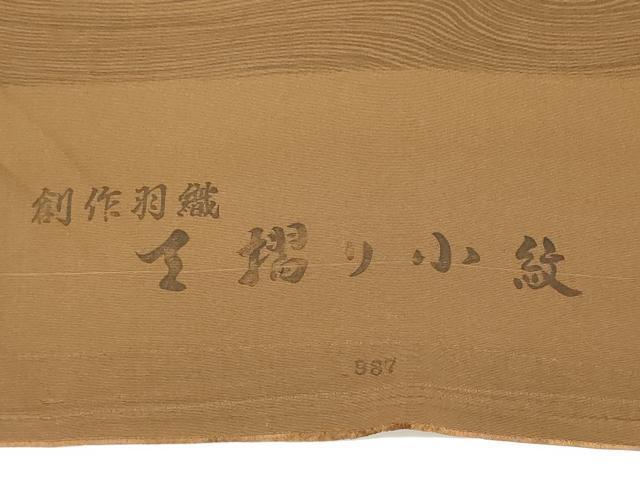 創作羽織
手摺り小紋
987